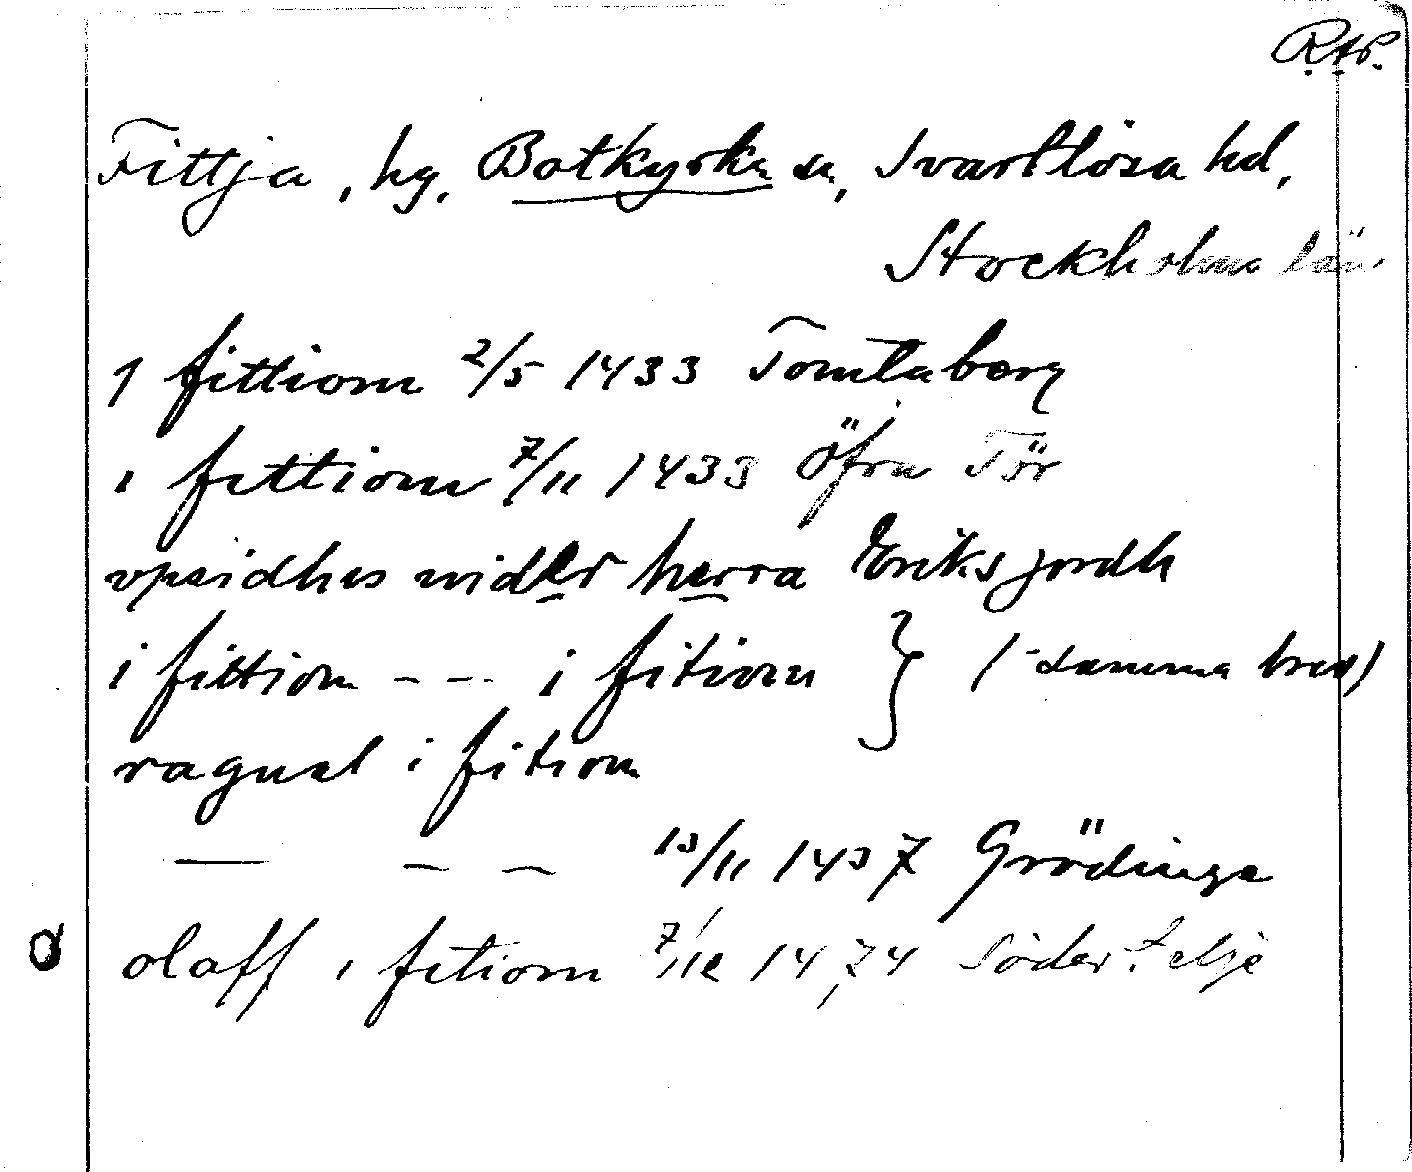 RAP.
Fittja, hg, Botkyrka sn, Svartlösa hd,
Stockholms län.
J fittiom 2/5 1433 Tomtaberg
i fittiom 7/11 1433 Öfra Tör
vpsidhes wider herra Eriks jordh
i fittiom - - - i fitiom } (- samma brev)
ragual i fitiom
— – – 13/11 1437 Grödinge
a olaff i fitiom 7/12 1474 Södertelje